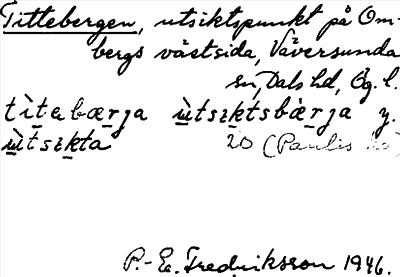 Tittebergen, utsiktspunkt på Om-
bergs västsida, Väversunda
sn, Dals hd, Ög. l.
tìtebærja ùtsiktsbærja y.
ùtsikta 20 (Paulis
P.-E. Fredriksson 1946.